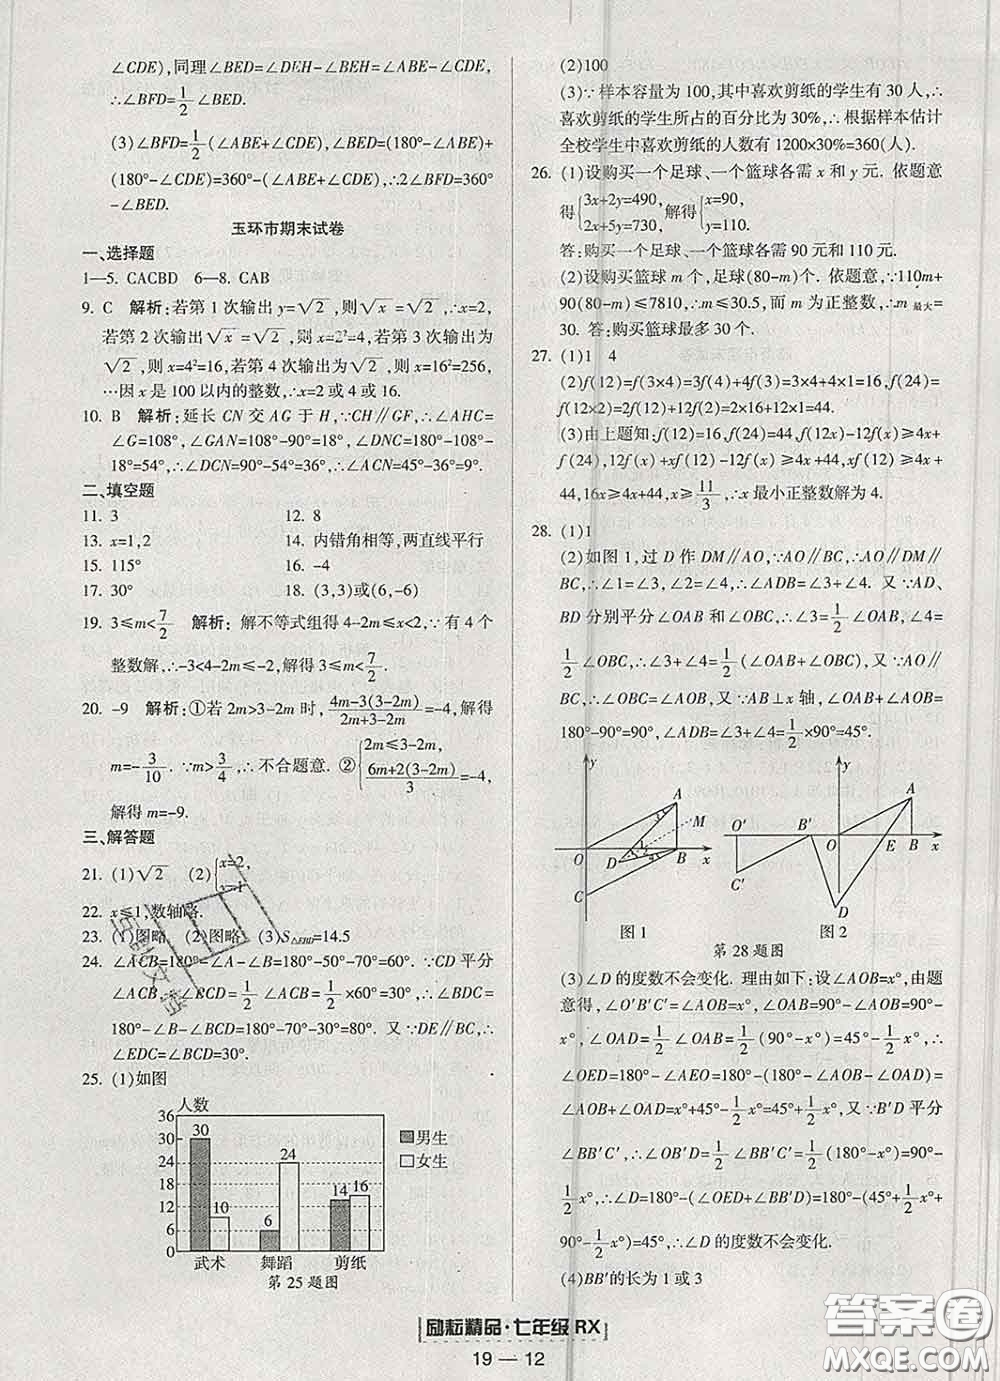 ∠CDE),同理∠BED=∠DEH-∠BEH=∠ABE-∠CDE,
∴∠BFD=1/2∠BED.
(3)∠BFD=1/2(∠ABE+∠CDE),∠BED=(180°-∠ABE)+
(180°-∠CDE)=360°-(∠ABE+∠CDE),∴2∠BFD=360°-
∠BED.
玉环市期末试卷
一、选择题
1—5. CACBD 6—8. CAB
9. C 解析:若第 1 次输出 y=√2,则√x=√2,∴x=2,
若第 2 次输出√x=√2,则 x=2²=4,若第 3 次输出为
√2,则 x=4²=16,若第 4 次输出为√2,则 x=16²=256,
…因 x 是 100 以内的整数,∴x=2 或 4 或 16.
10. B 解析:延长 CN 交 AG 于 H,∵CH∥GF,∴∠AHC=
∠G=108°,∠GAN=108°-90°=18°,∠DNC=180°-108°-
18°=54°,∴∠DCN=90°-54°=36°,∴∠ACN=45°-36°=9°.
二、填空题
11. 3 12. 8
13. x=1,2 14. 内错角相等,两直线平行
15. 115° 16. -4
17. 30° 18. (3,3)或(6,-6)
19. 3≤m<7/2 解析:解不等式组得 4-2m≤x<2,∵有 4 个
整数解,∴-3<4-2m≤-2,解得 3≤m<7/2.
20. -9 解析:①若 2m>3-2m 时,(4m-3(3-2m))/(2m+3-2m)=-4,解得
m=-3/10. ∵m>3/4,∴不合题意. ②{2m≤3-2m, (6m+2(3-2m))/3=-4,
解得 m=-9.
三、解答题
21. (1)√2 (2){x=2, y=1
22. x≤1,数轴略.
23. (1)图略 (2)图略 (3)S=14.5
24. ∠ACB=180°-∠A-∠B=180°-50°-70°=60°. ∵CD 平分
∠ACB,∴∠BCD=1/2∠ACB=1/2×60°=30°,∴∠BDC=
180°-∠B-∠BCD=180°-70°-30°=80°. 又∵DE∥BC,∴
∠EDC=∠BCD=30°.
25. (1)如图
人数
36
30
24
18
12
6
0
30
10
6
24
14
16
男生
女生
武术 舞蹈 剪纸
第 25 题图
(2)100
(3)∵样本容量为 100,其中喜欢剪纸的学生有 30 人,∴
喜欢剪纸的学生所占的百分比为 30%,∴根据样本估计
全校学生中喜欢剪纸的人数有 1200×30%=360(人).
26. (1)设购买一个足球、一个篮球各需 x 和 y 元. 依题意
得{3x+2y=490, 5x+2y=730,解得{x=90, y=110.
答:购买一个足球、一个篮球各需 90 元和 110 元.
(2)设购买篮球 m 个,足球(80-m)个. 依题意,∵110m+
90(80-m)≤7810,∴m≤30.5,而 m 为正整数,∴m最大=
30. 答:购买篮球最多 30 个.
27. (1)1 4
(2)f(12)=f(3×4)=3f(4)+4f(3)=3×4+4×1=16,f(24)=
f(12×2)=2f(12)+12f(2)=2×16+12×1=44.
(3)由上题知:f(12)=16,f(24)=44,f(12x)-12f(x)≥4x+
f(24),12f(x)+xf(12)-12f(x)≥4x+44,xf(12)≥4x+
44,16x≥4x+44,x≥11/3,∴x 最小正整数解为 4.
28. (1)1
(2)如图 1,过 D 作 DM∥AO,∵AO∥BC,∴AO∥DM∥
BC,∴∠1=∠3,∠2=∠4,∴∠ADB=∠3+∠4. 又∵AD、
BD 分别平分∠OAB 和∠OBC,∴∠3=1/2∠OAB,∠4=
1/2∠OBC,∴∠3+∠4=1/2(∠OAB+∠OBC),又∵AO∥
BC,∴∠OBC=∠AOB,又∵AB⊥x 轴,∴∠OAB+∠AOB=
180°-90°=90°,∴∠ADB=∠3+∠4=1/2×90°=45°.
y
A
M
O
D
B
x
C
1
2
3
4
图 1
y
A
O′
B′
O
E
B
x
C′
D
图 2
第 28 题图
(3)∠D 的度数不会变化. 理由如下:设∠AOB=x°,由题
意得,∠O′B′C′=∠AOB=x°,∠OAB=90°-∠AOB=90°-
x°,∴∠OAD=1/2∠OAB=1/2(90°-x°)=45°-1/2x°,∴
∠OED=180°-∠AEO=180°-(180°-∠AOB-∠OAD)=
∠AOB+∠OAD=x°+45°-1/2x°=45°+1/2x°,又∵B′D 平分
∠BB′C′,∴∠BB′D=1/2∠BB′C′=1/2(180°-x°)=90°-
1/2x°,∴∠D=180°-(∠OED+∠BB′D)=180°-(45°+1/2x°+
90°-1/2x°)=45°,∴∠D 的度数不会变化.
(4)BB′的长为 1 或 3
励耘精品·七年级 RX
19 — 12
答案圈
MXQE.COM